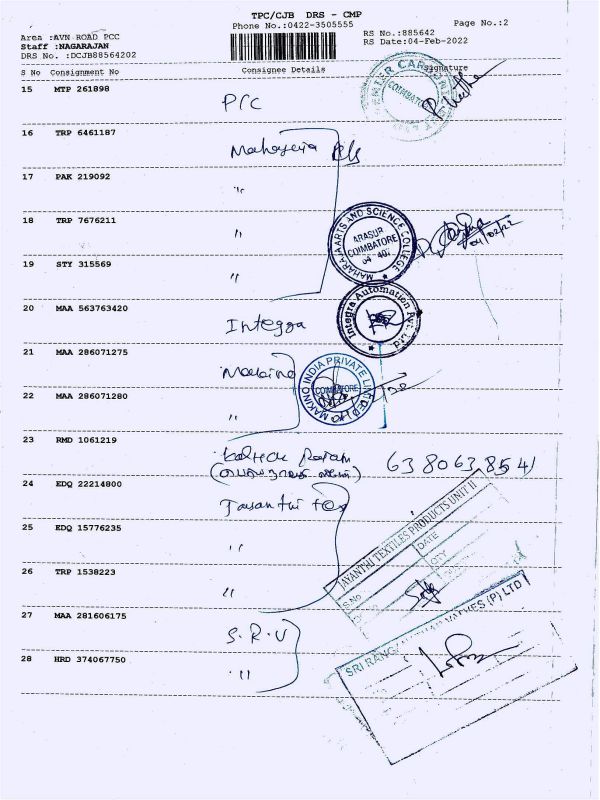 TPC/CJB DRS - CMP
Phone No.:0422-3505555
Page No.:2
Area :AVN ROAD PCC
Staff :NAGARAJAN
DRS No. :DCJB88564202
RS No.:885642
RS Date:04-Feb-2022
S No Consignment No Consignee Details Signature
15 MTP 261898
PCC
PREMIER CARBON
COIMBATORE
16 TRP 6461187
17 PAK 219092
"
18 TRP 7676211
"
MAHARAJA ARTS AND SCIENCE COLLEGE
ARASUR
COIMBATORE
04/02/22
19 STY 315569
"
20 MAA 563763420
Integra
Integra Automation Pvt. Ltd
21 MAA 286071275
Makino
MAKINO INDIA PRIVATE LIMITED
COIMBATORE
22 MAA 286071280
"
23 RMD 1061219
638063,8541
24 EDQ 22214800
Jayanthi tex
25 EDQ 15776235
"
JAYANTHI TEXTILES PRODUCTS UNIT II
S.No
DATE
QTY
26 TRP 1538223
"
27 MAA 281606175
S.R.V
SRI RANGANATHAR VALVES (P) LTD
28 HRD 374067750
"